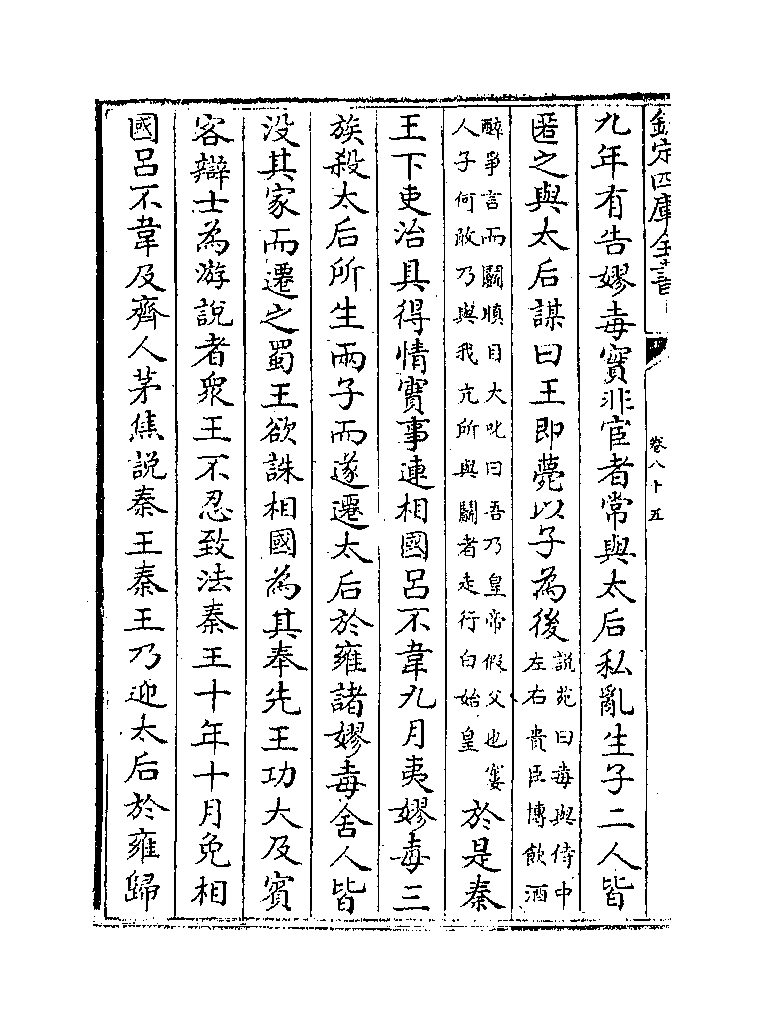 欽定四庫全書
卷八十五
九年有告嫪毐實非宦者常與太后私亂生子二人皆
匿之與太后謀曰王即薨以子為後說苑曰毐與侍中左右貴臣博飲酒
醉爭言而鬭瞋目大叱曰吾乃皇帝假父也窶人子何敢乃與我亢所與鬭者走行白始皇於是秦
王下吏治具得情實事連相國呂不韋九月夷嫪毐三
族殺太后所生兩子而遂遷太后於雍諸嫪毐舍人皆
沒其家而遷之蜀王欲誅相國為其奉先王功大及賓
客辯士為游說者衆王不忍致法秦王十年十月免相
國呂不韋及齊人茅焦說秦王秦王乃迎太后於雍歸